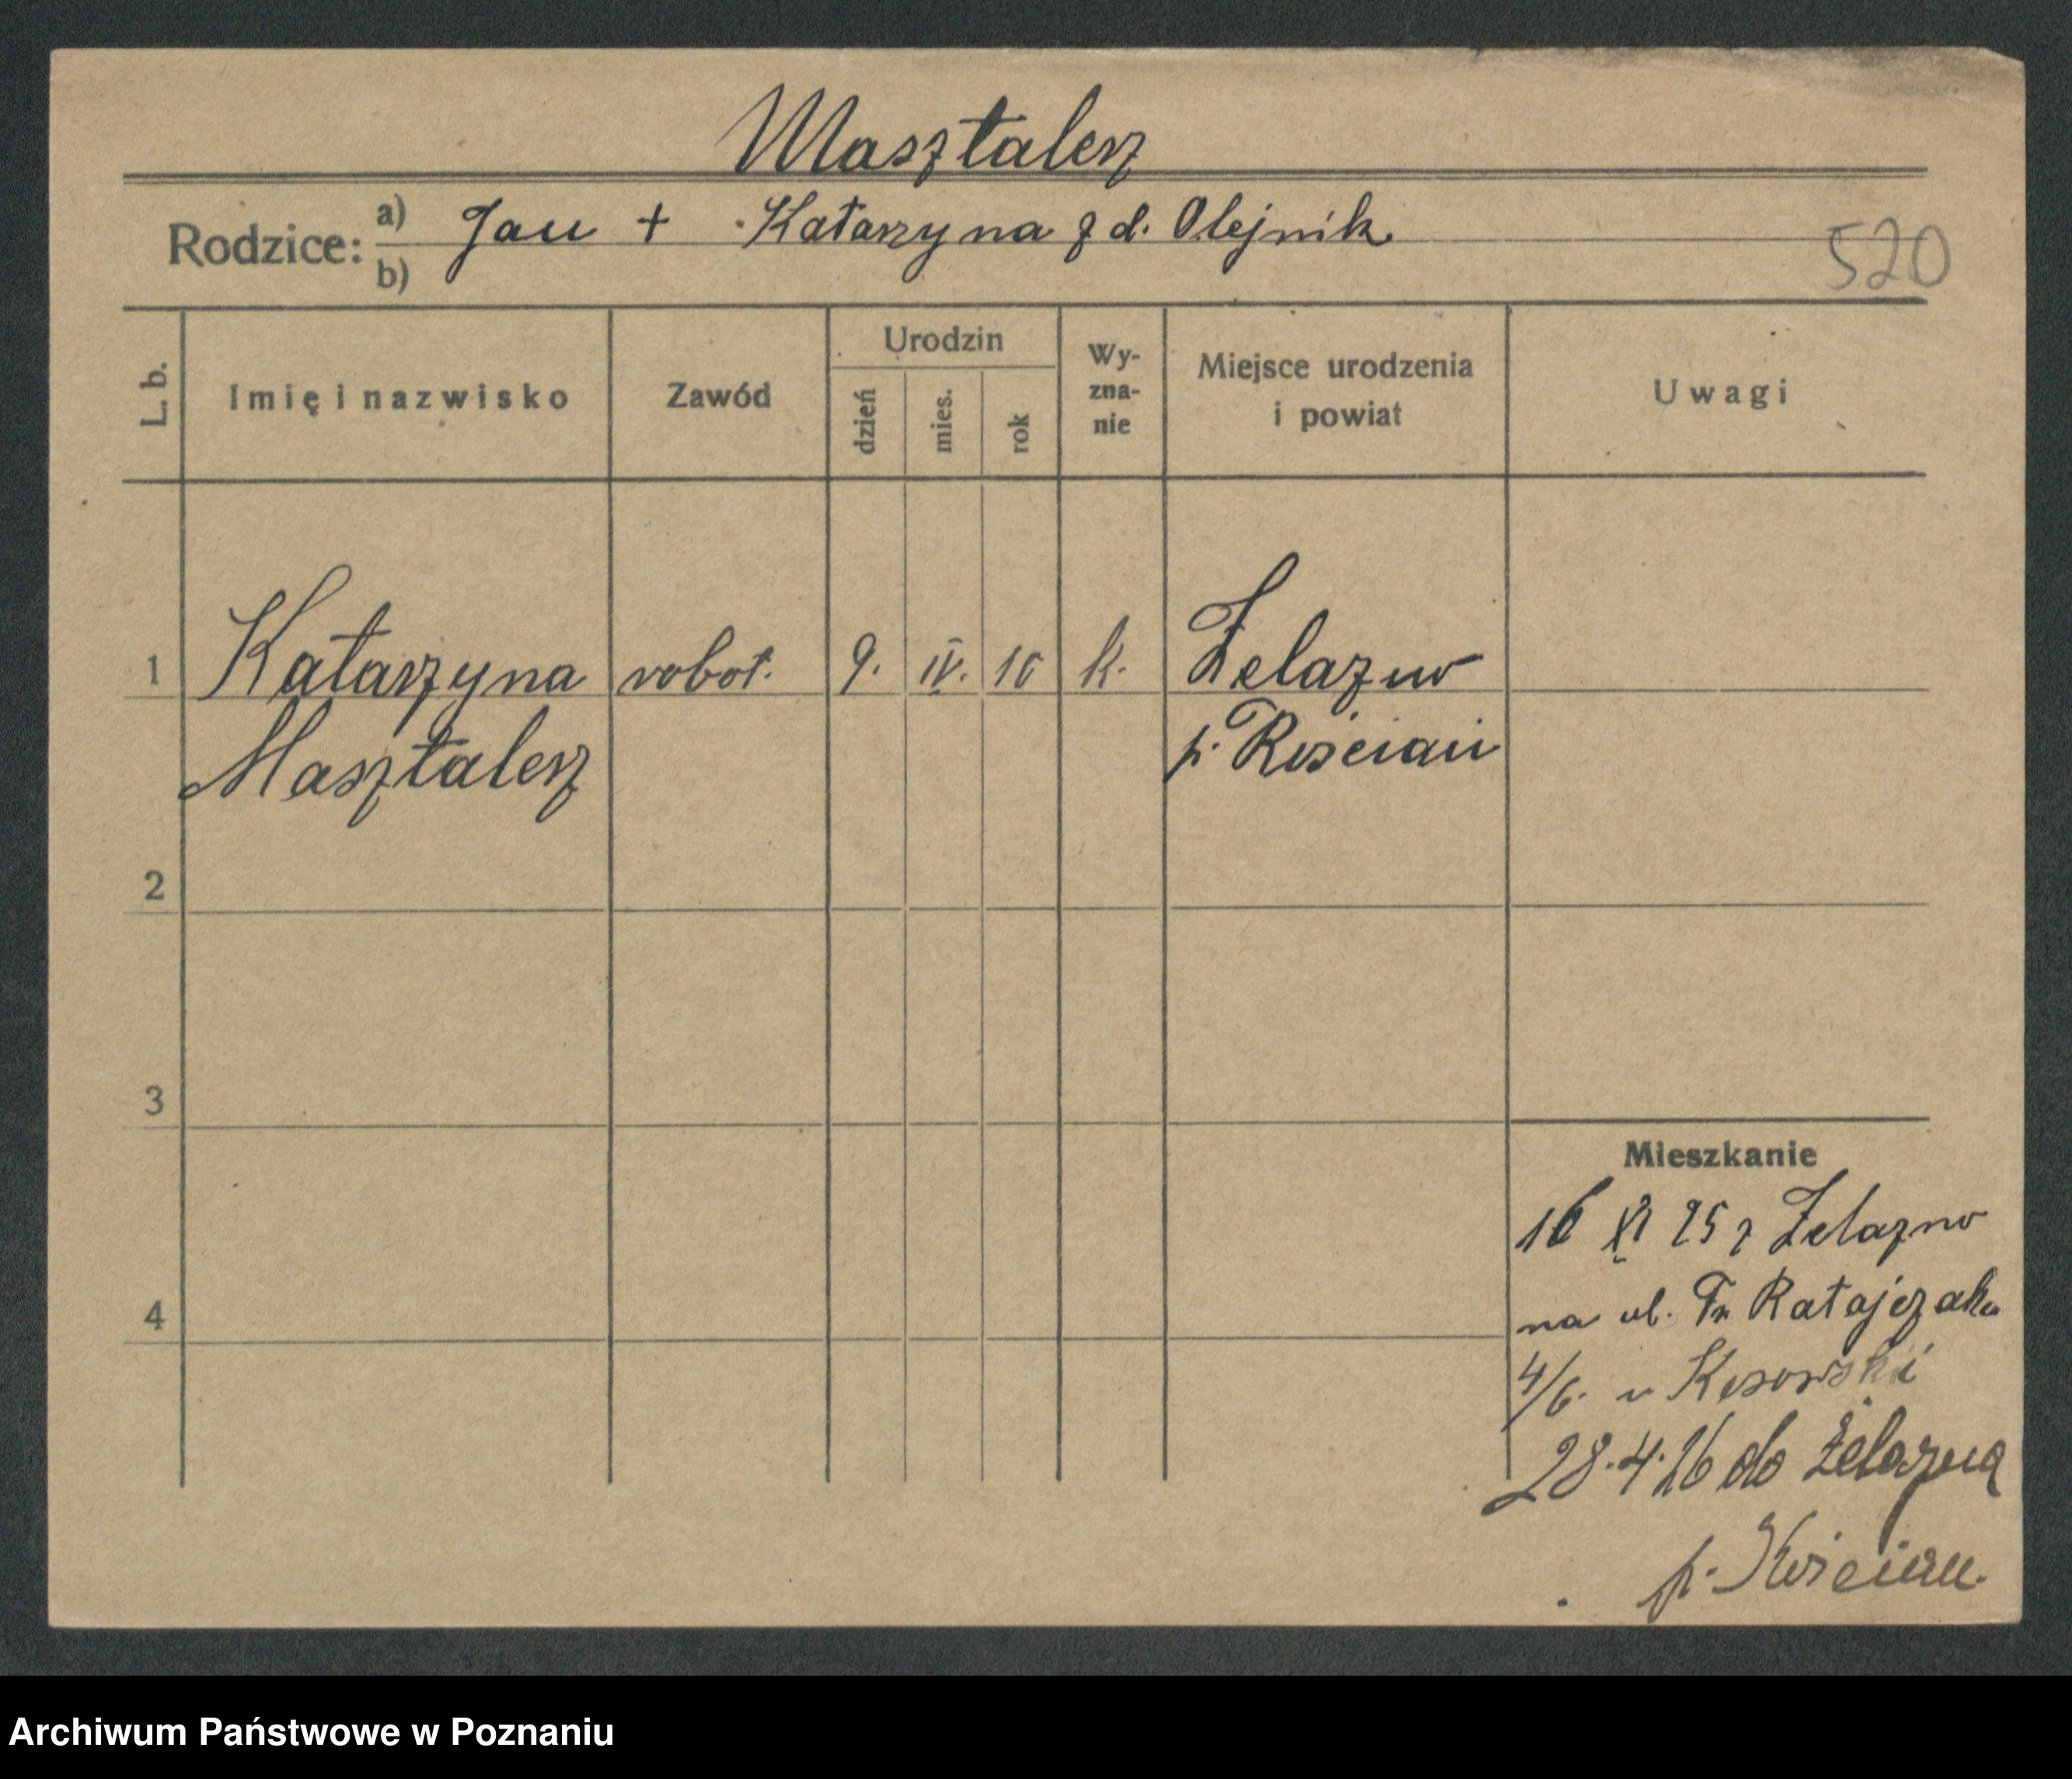 Masztalerz
Rodzice: a) Jan + Katarzyna z d. Olejnik
b)
520
L. b.
Imię i nazwisko
Zawód
Urodzin
dzień
mies.
rok
Wy-
zna-
nie
Miejsce urodzenia
i powiat
Uwagi
1 Katarzyna robot. 9. IV. 10 k. Żelazno
Masztalerz p. Kościan
2
3
4
Mieszkanie
16 XI 25 z Żelazno
na ul. Fr Ratajczaka
4/6. u
28.4.26 do Żelazna
p. Kościan.
Archiwum Państwowe w Poznaniu